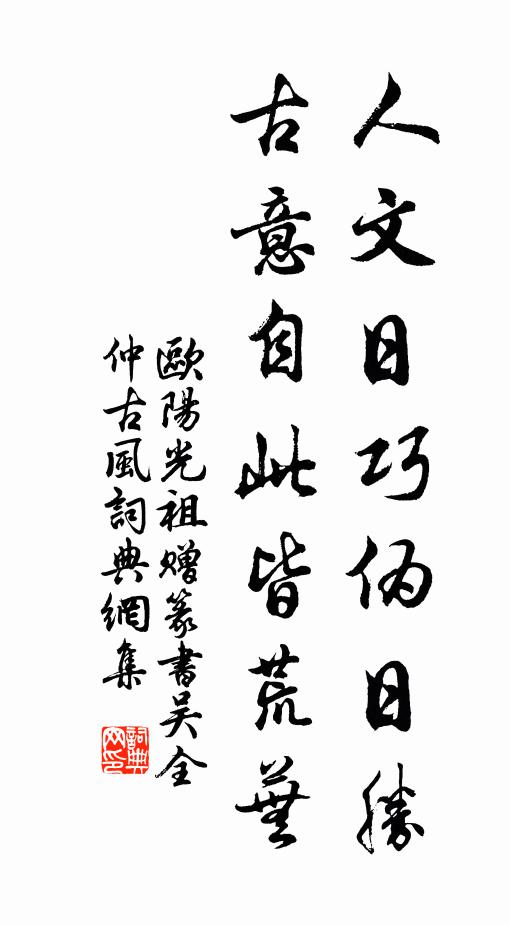 人文日巧偽日勝
古意自此皆荒蕪
歐陽光祖贈篆書吴全
仲古風詞典網集
詞典
网印